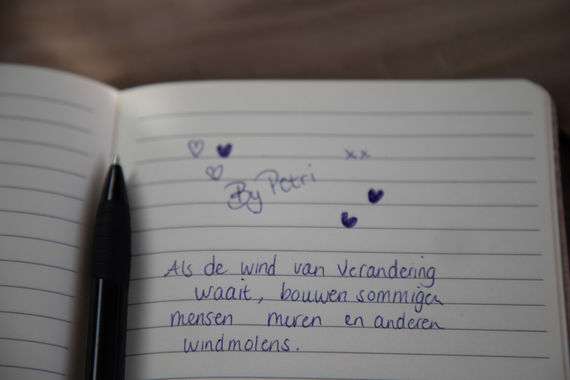 xx
By Petri
Als de wind van verandering
waait, bouwen sommigen
mensen muren en anderen
windmolens.